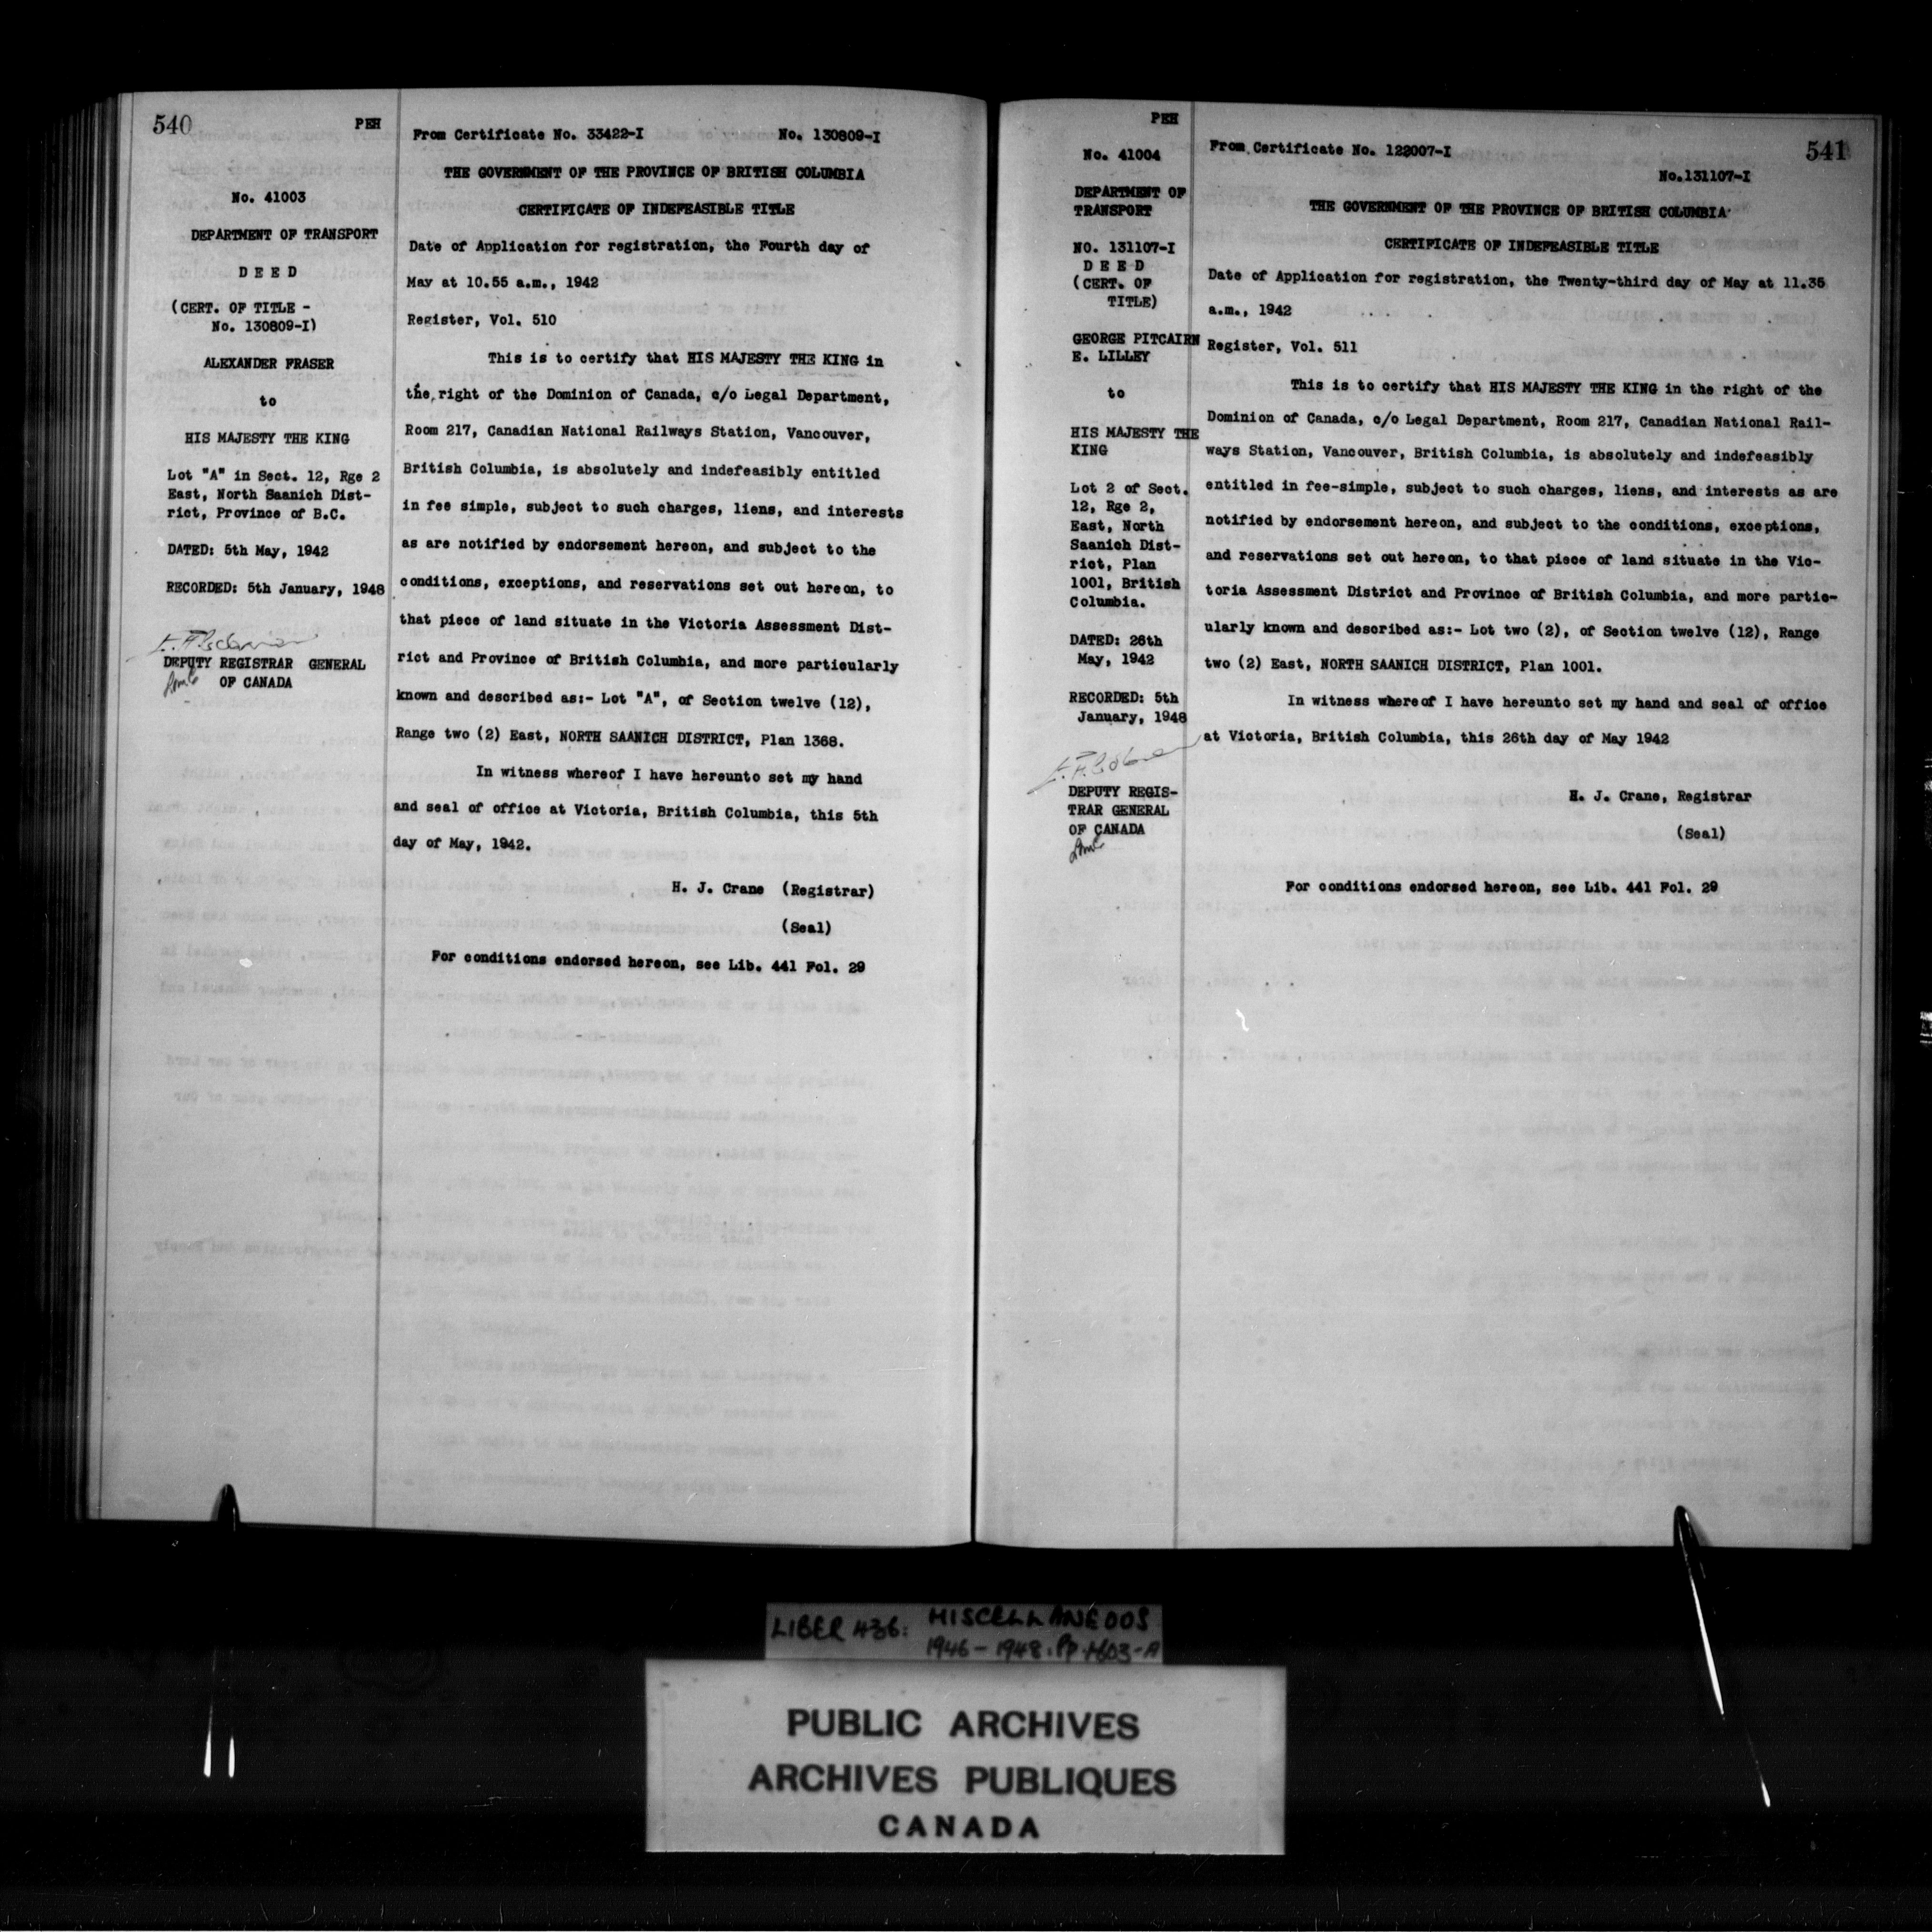 540
PEH
No. 41003
DEPARTMENT OF TRANSPORT
D E E D
(CERT. OF TITLE -
No. 130809-I)
ALEXANDER FRASER
to
HIS MAJESTY THE KING
Lot "A" in Sect. 12, Rge 2
East, North Saanich Dist-
rict, Province of B.C.
DATED: 5th May, 1942
RECORDED: 5th January, 1948
DEPUTY REGISTRAR GENERAL
OF CANADA
From Certificate No. 33422-I No. 130809-I
THE GOVERNMENT OF THE PROVINCE OF BRITISH COLUMBIA
CERTIFICATE OF INDEFEASIBLE TITLE
Date of Application for registration, the Fourth day of
May at 10.55 a.m., 1942
Register, Vol. 510
This is to certify that HIS MAJESTY THE KING in
the right of the Dominion of Canada, c/o Legal Department,
Room 217, Canadian National Railways Station, Vancouver,
British Columbia, is absolutely and indefeasibly entitled
in fee simple, subject to such charges, liens, and interests
as are notified by endorsement hereon, and subject to the
conditions, exceptions, and reservations set out hereon, to
that piece of land situate in the Victoria Assessment Dist-
rict and Province of British Columbia, and more particularly
known and described as:- Lot "A", of Section twelve (12),
Range two (2) East, NORTH SAANICH DISTRICT, Plan 1368.
In witness whereof I have hereunto set my hand
and seal of office at Victoria, British Columbia, this 5th
day of May, 1942.
H. J. Crane (Registrar)
(Seal)
For conditions endorsed hereon, see Lib. 441 Fol. 29
PEH
541
No. 41004
DEPARTMENT OF
TRANSPORT
NO. 131107-I
D E E D
(CERT. OF
TITLE)
GEORGE PITCAIRN
E. LILLEY
to
HIS MAJESTY THE
KING
Lot 2 of Sect.
12, Rge 2,
East, North
Saanich Dist-
rict, Plan
1001, British
Columbia.
DATED: 26th
May, 1942
RECORDED: 5th
January, 1948
DEPUTY REGIS-
TRAR GENERAL
OF CANADA
From Certificate No. 122007-I
No.131107-I
THE GOVERNMENT OF THE PROVINCE OF BRITISH COLUMBIA
CERTIFICATE OF INDEFEASIBLE TITLE
Date of Application for registration, the Twenty-third day of May at 11.35
a.m., 1942
Register, Vol. 511
This is to certify that HIS MAJESTY THE KING in the right of the
Dominion of Canada, c/o Legal Department, Room 217, Canadian National Rail-
ways Station, Vancouver, British Columbia, is absolutely and indefeasibly
entitled in fee-simple, subject to such charges, liens, and interests as are
notified by endorsement hereon, and subject to the conditions, exceptions,
and reservations set out hereon, to that piece of land situate in the Vic-
toria Assessment District and Province of British Columbia, and more partic-
ularly known and described as:- Lot two (2), of Section twelve (12), Range
two (2) East, NORTH SAANICH DISTRICT, Plan 1001.
In witness whereof I have hereunto set my hand and seal of office
at Victoria, British Columbia, this 26th day of May 1942
H. J. Crane, Registrar
(Seal)
For conditions endorsed hereon, see Lib. 441 Fol. 29
LIBER 436: MISCELLANEOUS
1946-1948.
PUBLIC ARCHIVES
ARCHIVES PUBLIQUES
CANADA